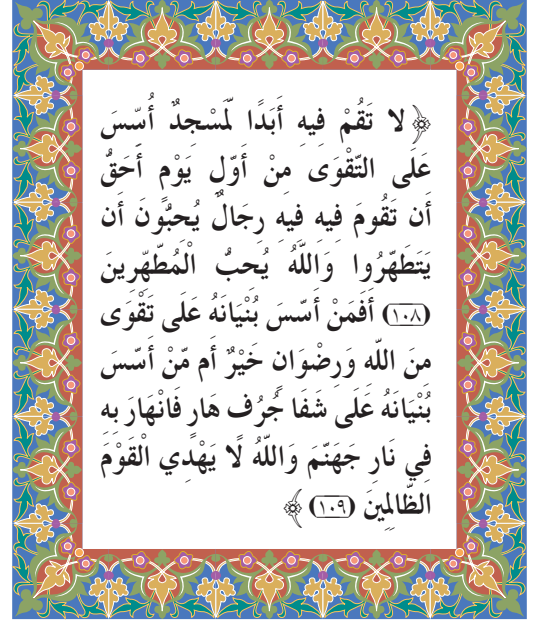 ﴿لا تَقُمْ فِيهِ أَبَدًا لَّمَسْجِدٌ أُسِّسَ
عَلَى التَّقْوَى مِنْ أَوَّلِ يَوْمٍ أَحَقُّ
أَن تَقُومَ فِيهِ فِيهِ رِجَالٌ يُحِبُّونَ أَن
يَتَطَهَّرُوا وَاللَّهُ يُحِبُّ الْمُطَّهِّرِينَ
(١٠٨) أَفَمَنْ أَسَّسَ بُنْيَانَهُ عَلَى تَقْوَى
مِنَ اللَّهِ وَرِضْوَانٍ خَيْرٌ أَم مَّنْ أَسَّسَ
بُنْيَانَهُ عَلَى شَفَا جُرُفٍ هَارٍ فَانْهَارَ بِهِ
فِي نَارِ جَهَنَّمَ وَاللَّهُ لَا يَهْدِي الْقَوْمَ
الظَّالِمِينَ (١٠٩)﴾